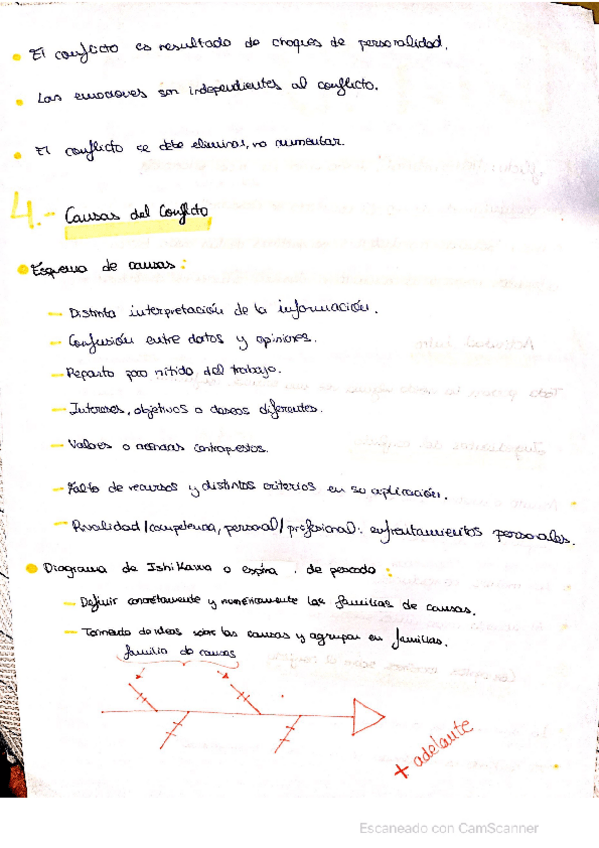 • El conflicto es resultado de choques de personalidad.
• Las emociones son independientes al conflicto.
• El conflicto se debe eliminar, no aumentar.
4.- Causas del Conflicto
• Esquema de causas:
– Distinta interpretación de la información.
– Confusión entre datos y opiniones.
– Reparto poco nítido del trabajo.
– Intereses, objetivos o deseos diferentes.
– Valores o normas contrapuestos.
– Falta de recursos y distintos criterios en su aplicación.
– Rivalidad/competencia, personal/profesional: enfrentamientos personales.
• Diagrama de Ishikawa o espina de pescado:
– Definir concretamente y numéricamente las familias de causas.
– Tormenta de ideas sobre las causas y agrupar en familias.
familia de causas
+ adelante
Escaneado con CamScanner